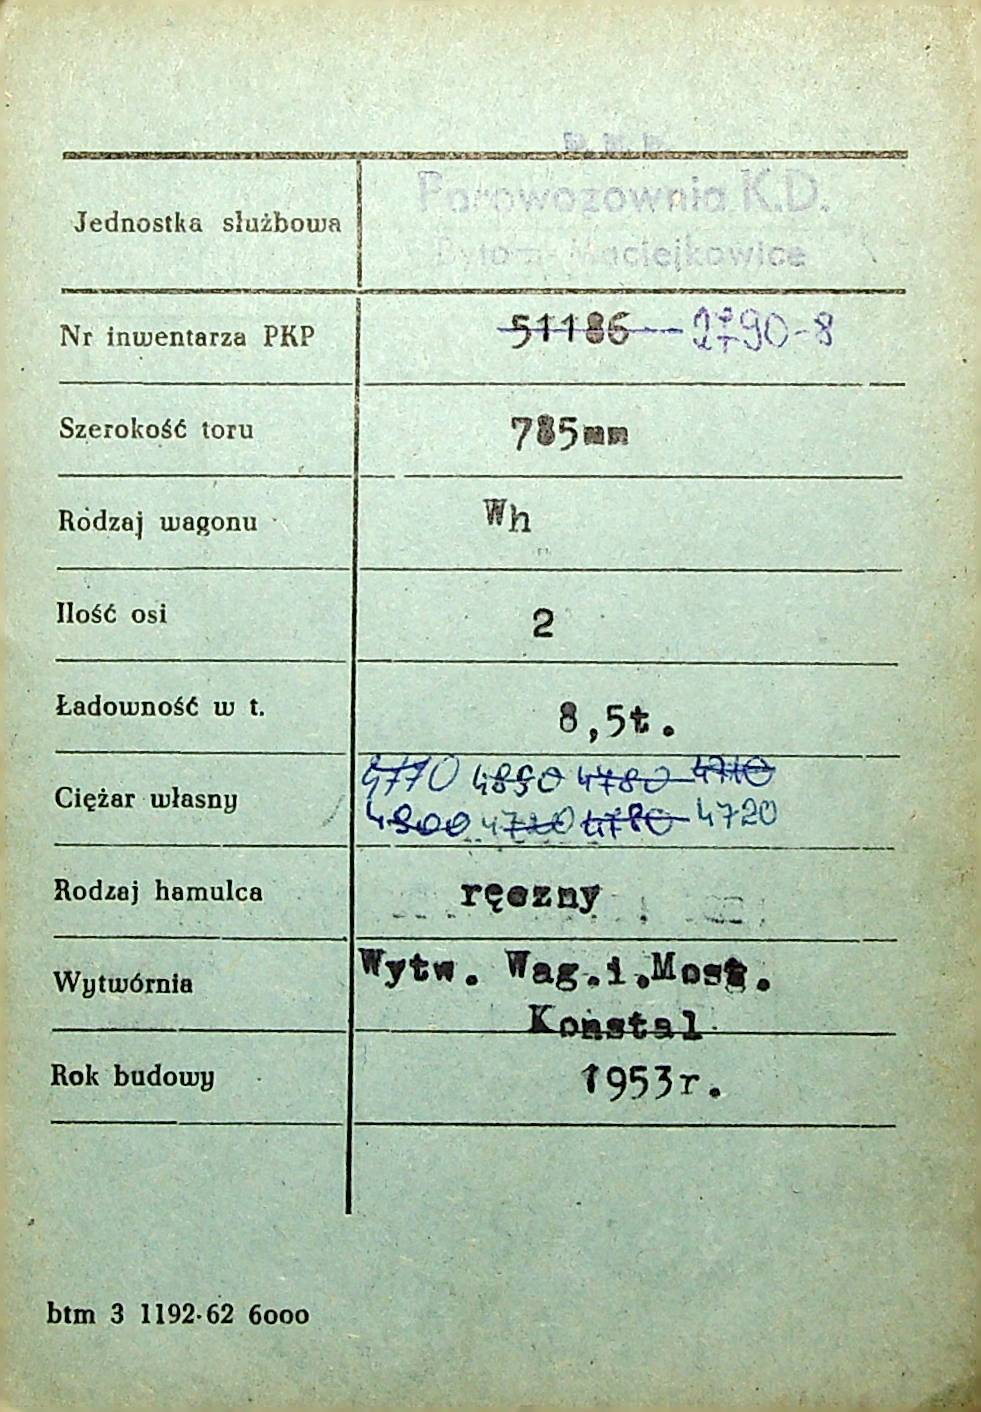 P. K. P.
Parowozownia K.D.
Jednostka służbowa
Bytom-Maciejkowice
Nr inwentarza PKP 51186 -90-8
Szerokość toru 785mm
Rodzaj wagonu Wh
Ilość osi 2
Ładowność w t. 8,5t.
4770 4850 4780 4710
Ciężar własny
4800 4720 4780 4720
Rodzaj hamulca ręczny
Wytw. Wag.i.Most.
Wytwórnia
Konstal
Rok budowy 1953r.
btm 3 1192-62 6000